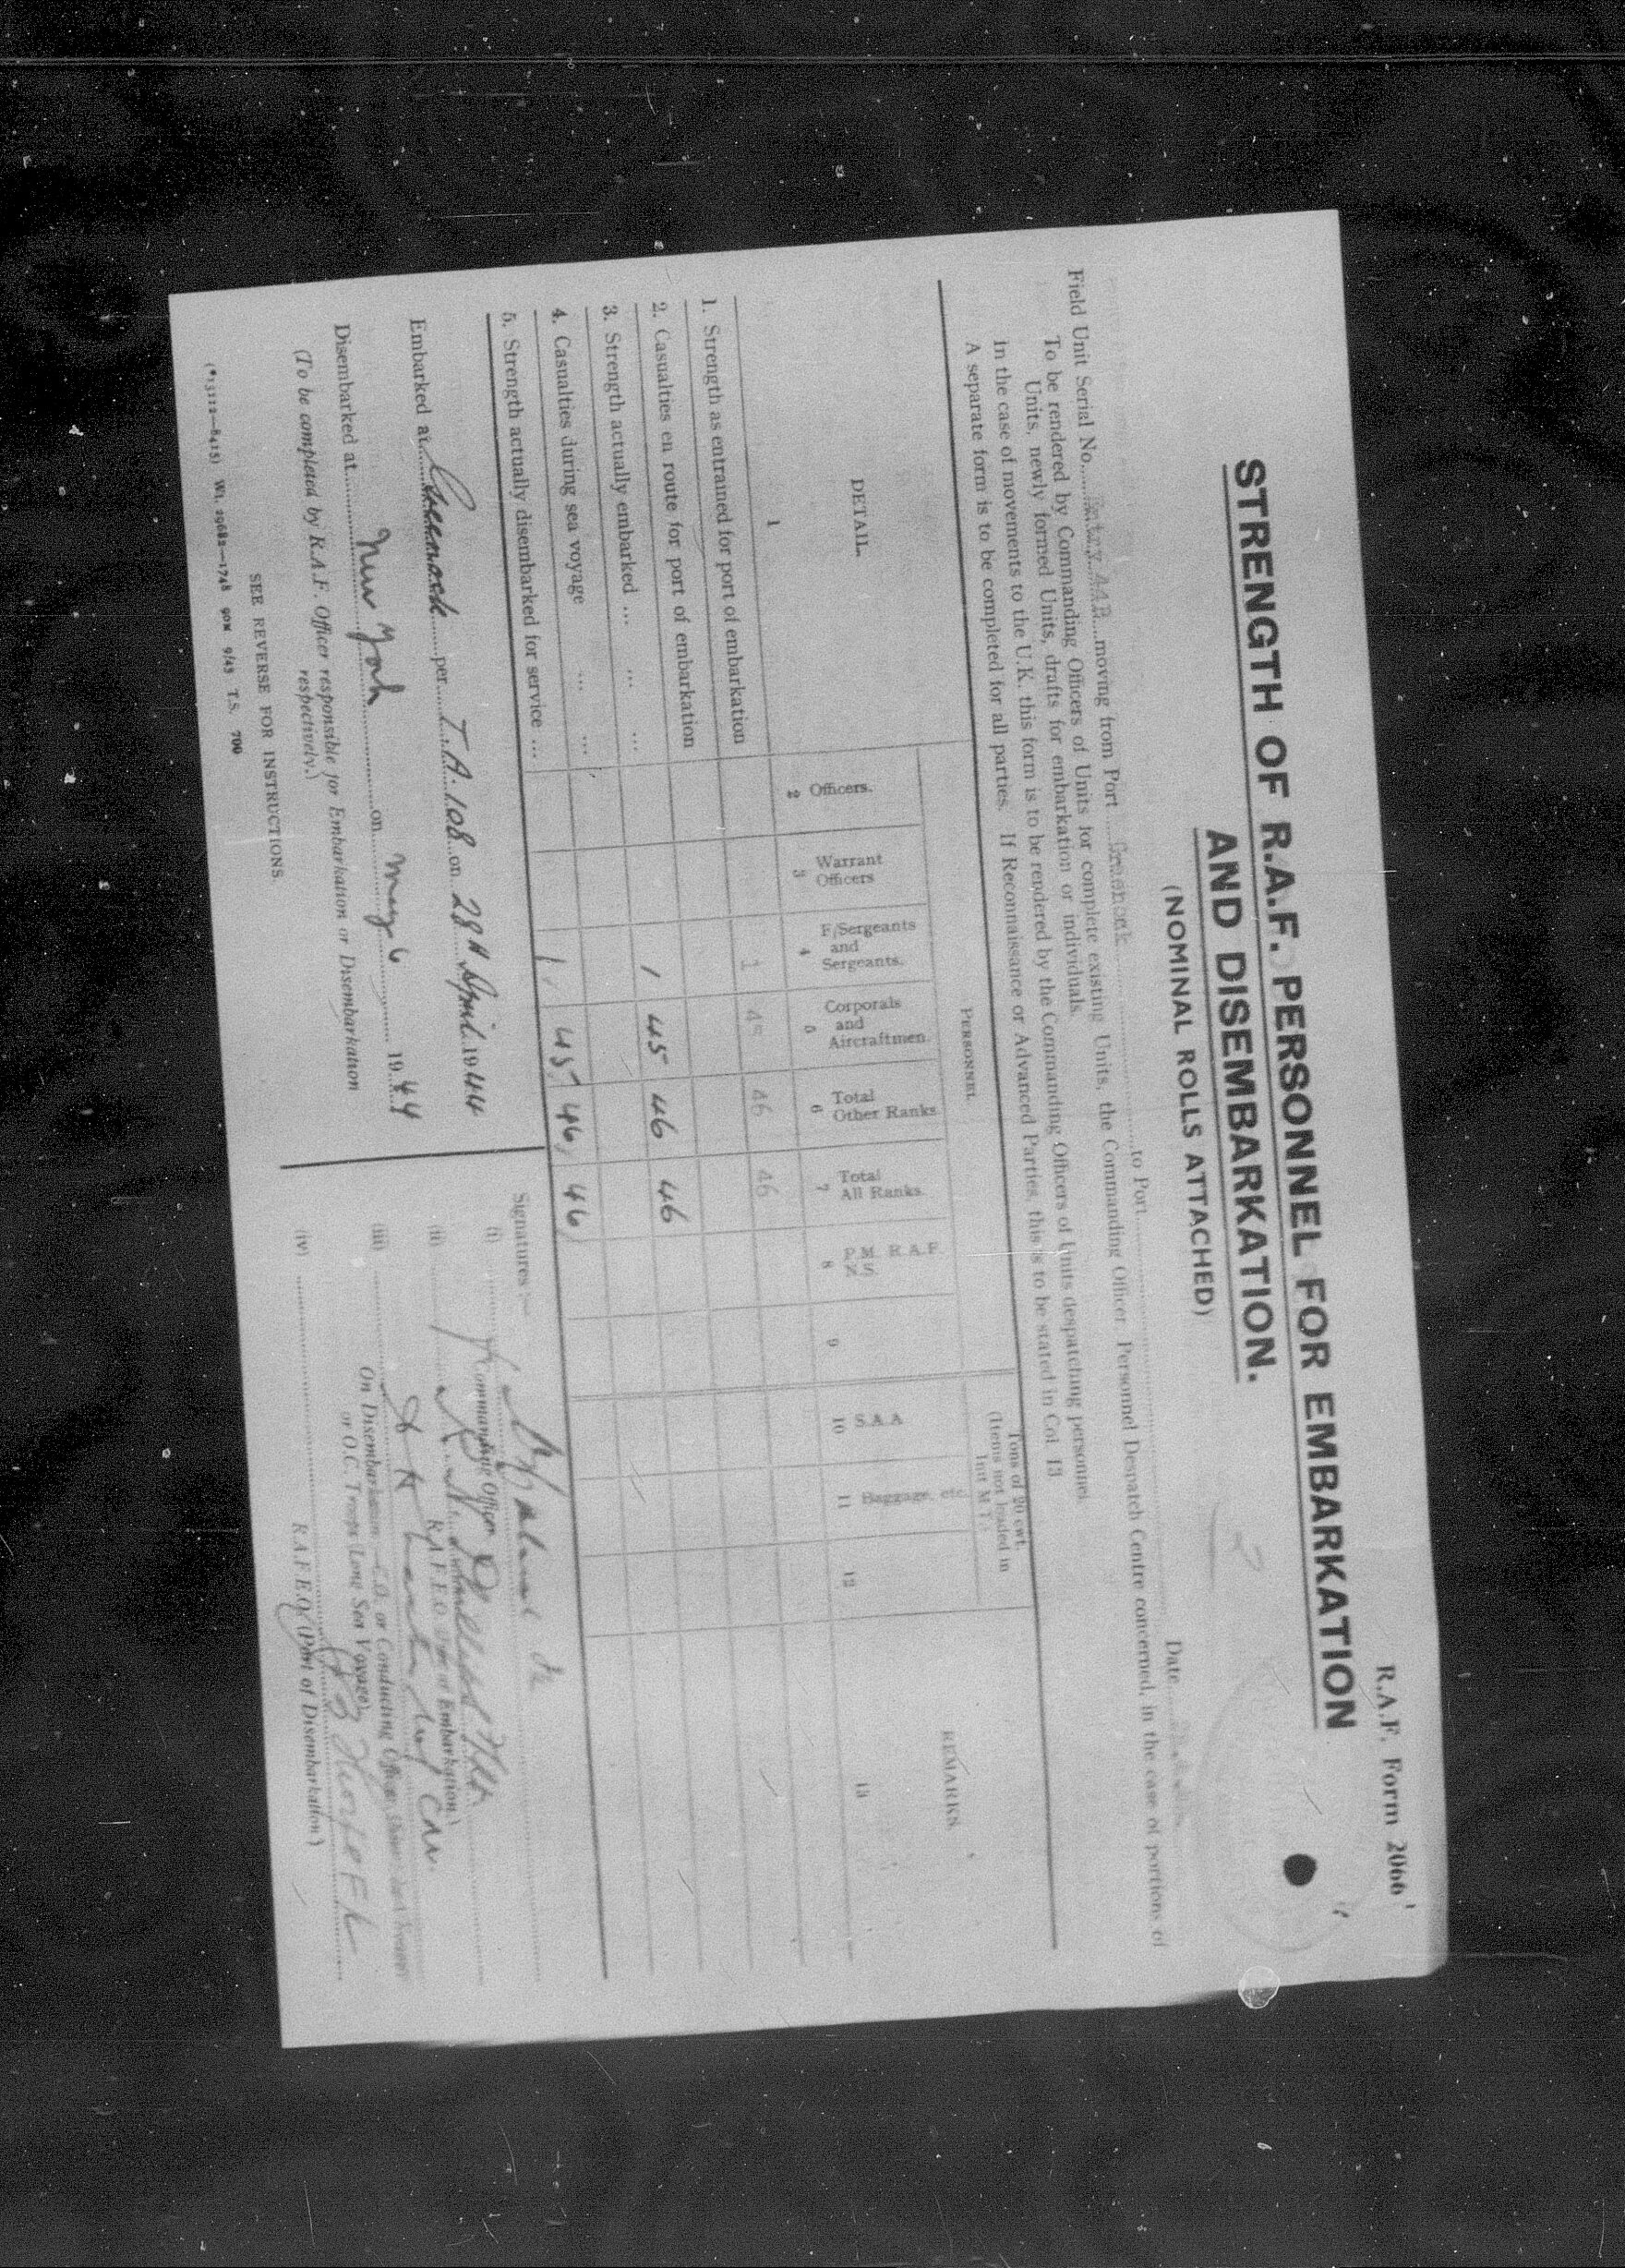 R.A.F. Form 2066
STRENGTH OF R.A.F. PERSONNEL FOR EMBARKATION
AND DISEMBARKATION.
(NOMINAL ROLLS ATTACHED)
Date
Field Unit Serial No. moving from Port Greenock to Port
To be rendered by Commanding Officers of Units for complete existing Units, the Commanding Officer Personnel Despatch Centre concerned, in the case of portions of
Units, newly formed Units, drafts for embarkation or individuals.
In the case of movements to the U.K. this form is to be rendered by the Commanding Officers of Units despatching personnel
A separate form is to be completed for all parties. If Reconnaissance or Advanced Parties, this is to be stated in Col 13
DETAIL. PERSONNEL Tons of 20 cwt. (Items not loaded in Unit M.T.) REMARKS
Officers. Warrant Officers F/Sergeants and Sergeants. Corporals and Aircraftmen. Total Other Ranks. Total All Ranks. P.M. R.A.F. N.S. S.A.A. Baggage, etc.
1 2 3 4 5 6 7 8 9 10 11 12 13
1. Strength as entrained for port of embarkation 1 45 46 46
2. Casualties en route for port of embarkation
3. Strength actually embarked ... ... ... 1 45 46 46
4. Casualties during sea voyage ... ...
5. Strength actually disembarked for service ... 1 45 46 46
Embarked at Greenock per T.A. 108 on 28th April 1944
Disembarked at New York on May 6 1944
(To be completed by R.A.F. Officer responsible for Embarkation or Disembarkation
respectively.)
SEE REVERSE FOR INSTRUCTIONS.
T.S. 700
Signatures :—
(i)
Commanding Officer
(ii)
R.A.F.E.O. (Port of Embarkation.)
(iii)
On Disembarkation—C.O. or Conducting Officer
or O.C. Troops (Long Sea Voyage)
(iv)
R.A.F.E.O. (Port of Disembarkation.)